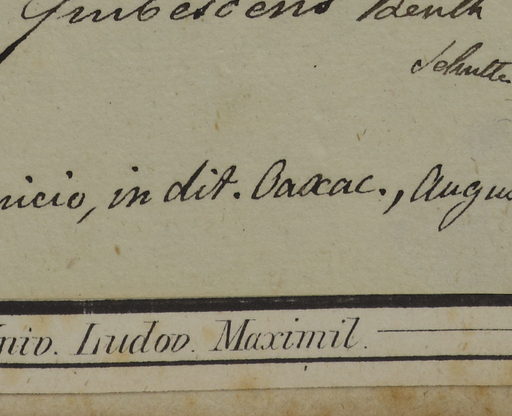 pubescens Benth
Schultes
nicio, in dit. Oaxac., Augu
Univ. Ludov. Maximil.